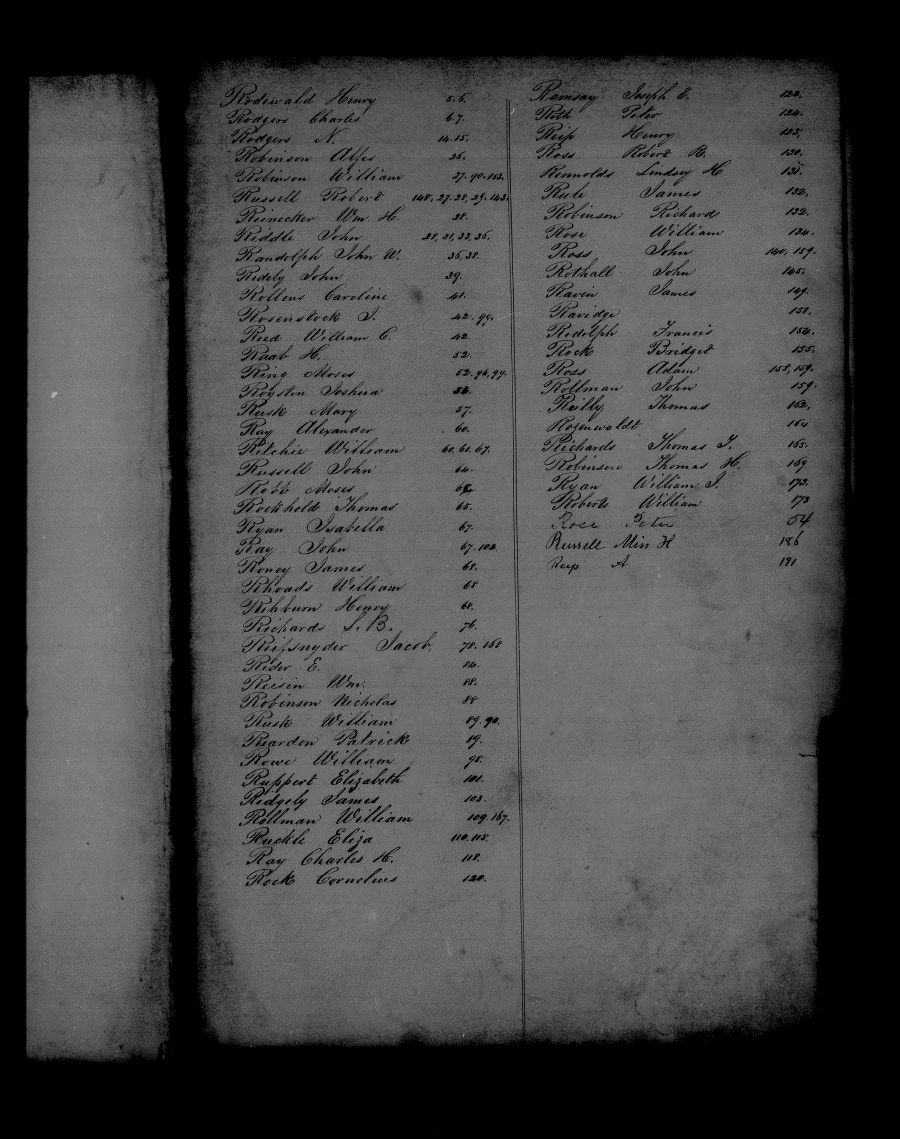 Rodewald Henry 5.6.
Rodgers Charles 6.7.
Rodgers N. 14.15.
Robinson 26.
Robinson William 27.90.153.
Russell Robert 148.27.28.29.143.
Reinecker Wm. H. 28.
Riddle John 28,31,33,36.
Randolph John W. 36,38.
Ridely John 39.
Rollins Caroline 41.
Rosenstock J. 42.99.
Reed William C. 42.
Raab H. 52.
Ring Moses 52.96.99.
Royston Joshua
Rusk Mary 57.
Ray Alexander 60.
Ritchie William 60.61.67.
Russell John 64.
Robb Moses
Rockhold Thomas 65.
Ryan Isabella 67.
Ray John 67.102.
Roney James 68.
Rhoads William 68
Rihburn Henry 68.
Richards S. B. 76.
Reifsnyder Jacob. 78.168
Rider E. 84.
Reisin Wm. 88.
Robinson Nicholas 88
Rusk William 89.90.
Reardon Patrick 89.
Rowe William 98.
Ruppert Elizabeth 101.
Ridgely James 103.
Rollman William 109.167.
Ruckle Eliza 110.115.
Ray Charles H. 118.
Rock Cornelius 120.
Ramsay Joseph E. 123.
Roth Peter 124.
Reip Henry 125.
Ross Robert R. 130.
Reunolds Lindsey H 131.
Rule James 132.
Robinson Richard 132.
Rose William 134.
Ross John 140,159.
Rothall John 145.
Ravin James 149.
Ravidge 150.
Rodolph Francis 154.
Rock Bridget 155.
Ross Adam 158,159.
Rollman John 159.
Reilly Thomas 162.
Rozenwaldt 164
Richards Thomas J. 165.
Robinson Thomas H. 169
Ryan William J. 173.
Roberts William 173
Rose Peter 54
Russell Miss H 186
Reip A 191